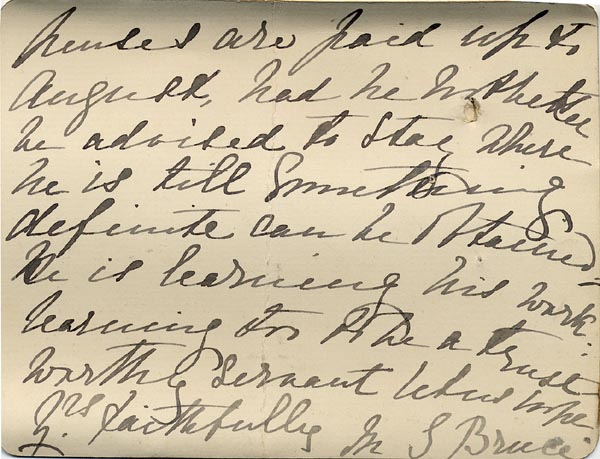 penses are paid up to
August, had he not better
be advised to stay where
he is till something
definite can be obtained –
He is learning his work
learning too to be a trust
worthy servant let us hope
Yrs faithfully M S Bruce